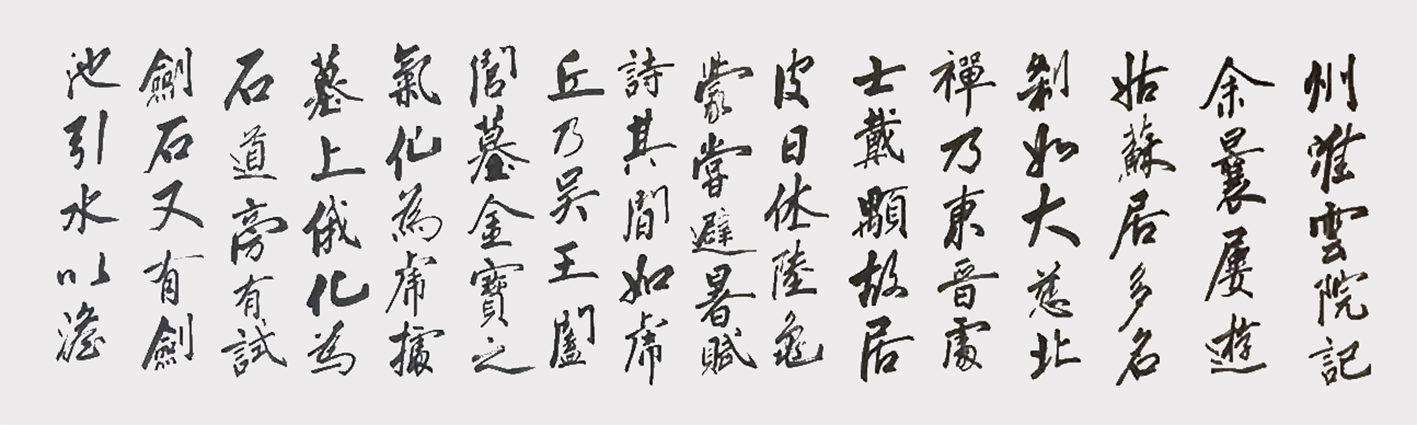 州淮雲院記
余曩屢遊
姑蘇居多名
刹如大慈北
禪乃東晉處
士戴顒故居
皮日休陸龜
蒙嘗避暑賦
詩其間如虎
丘乃吳王闔
閭墓金寶之
氣化為虎據
墓上俄化為
石道旁有試
劍石又有劍
池引水以澹